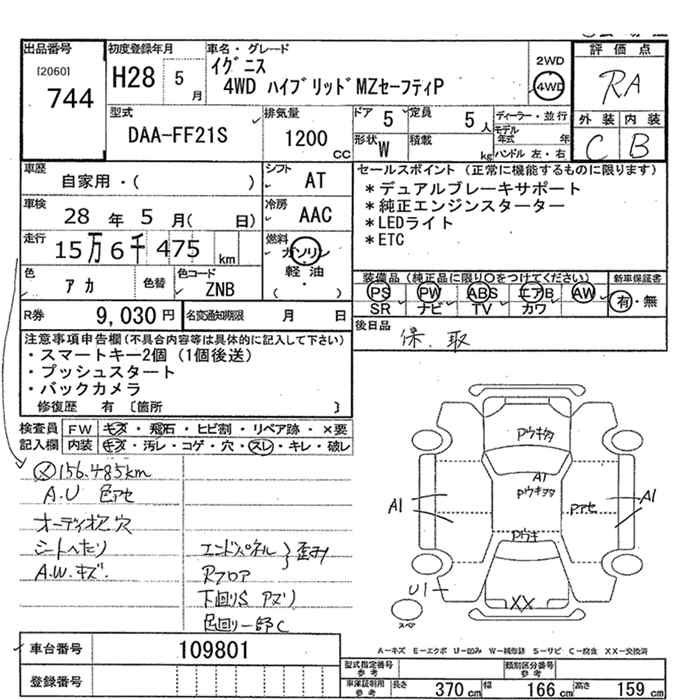 出品番号
[2060]
744
初度登録年月
H28 5月
車名・グレード
イグニス
4WD ハイブリッドMZセーフティP
2WD
4WD
評価点
RA
外装 内装
C B
型式
DAA-FF21S
排気量
1200 CC
ドア 5
定員 5人
形状 W
積載 kg
ディーラー・並行
モデル年式 年
ハンドル 左・右
車歴
自家用・( )
シフト AT
車検
28年 5月( 日)
冷房 AAC
走行
15万6千475 km
燃料
ガソリン
軽・油
( )
色 アカ
色替
色コード ZNB
R券 9,030円
名変通知期限 月 日
セールスポイント(正常に機能するものに限ります)
*デュアルブレーキサポート
*純正エンジンスターター
*LEDライト
*ETC
装備品(純正品に限り○をつけてください)
PS PW ABS エアB AW
SR ナビ TV カワ
新車保証書
有・無
後日品
保.取
注意事項申告欄(不具合内容等は具体的に記入して下さい)
・スマートキー2個(1個後送)
・プッシュスタート
・バックカメラ
修復歴 有 〔箇所 〕
検査員記入欄
FW キズ・飛石・ヒビ割・リペア跡・×要
内装 キズ・汚レ・コゲ・穴・スレ・キレ・破レ
メ 156.485km
A.U 色アセ
オーディオ穴
シートへたり
A.W.キズ.
エンドパネル
Rフロア
歪み
下回りS アズリ
色回り一部C
Pウキタ
A1
Pウキヲタ
A1
Pアセ
A1
Pウキ
U1
XX
スペア
A-キズ E-エクボ U-凹み W-補修跡 S-サビ C-腐食 XX-交換済
車台番号 109801
登録番号
型式指定番号 参考
類別区分番号 参考
車庫証明用 参考
長さ 370cm 幅 166cm 高さ 159cm